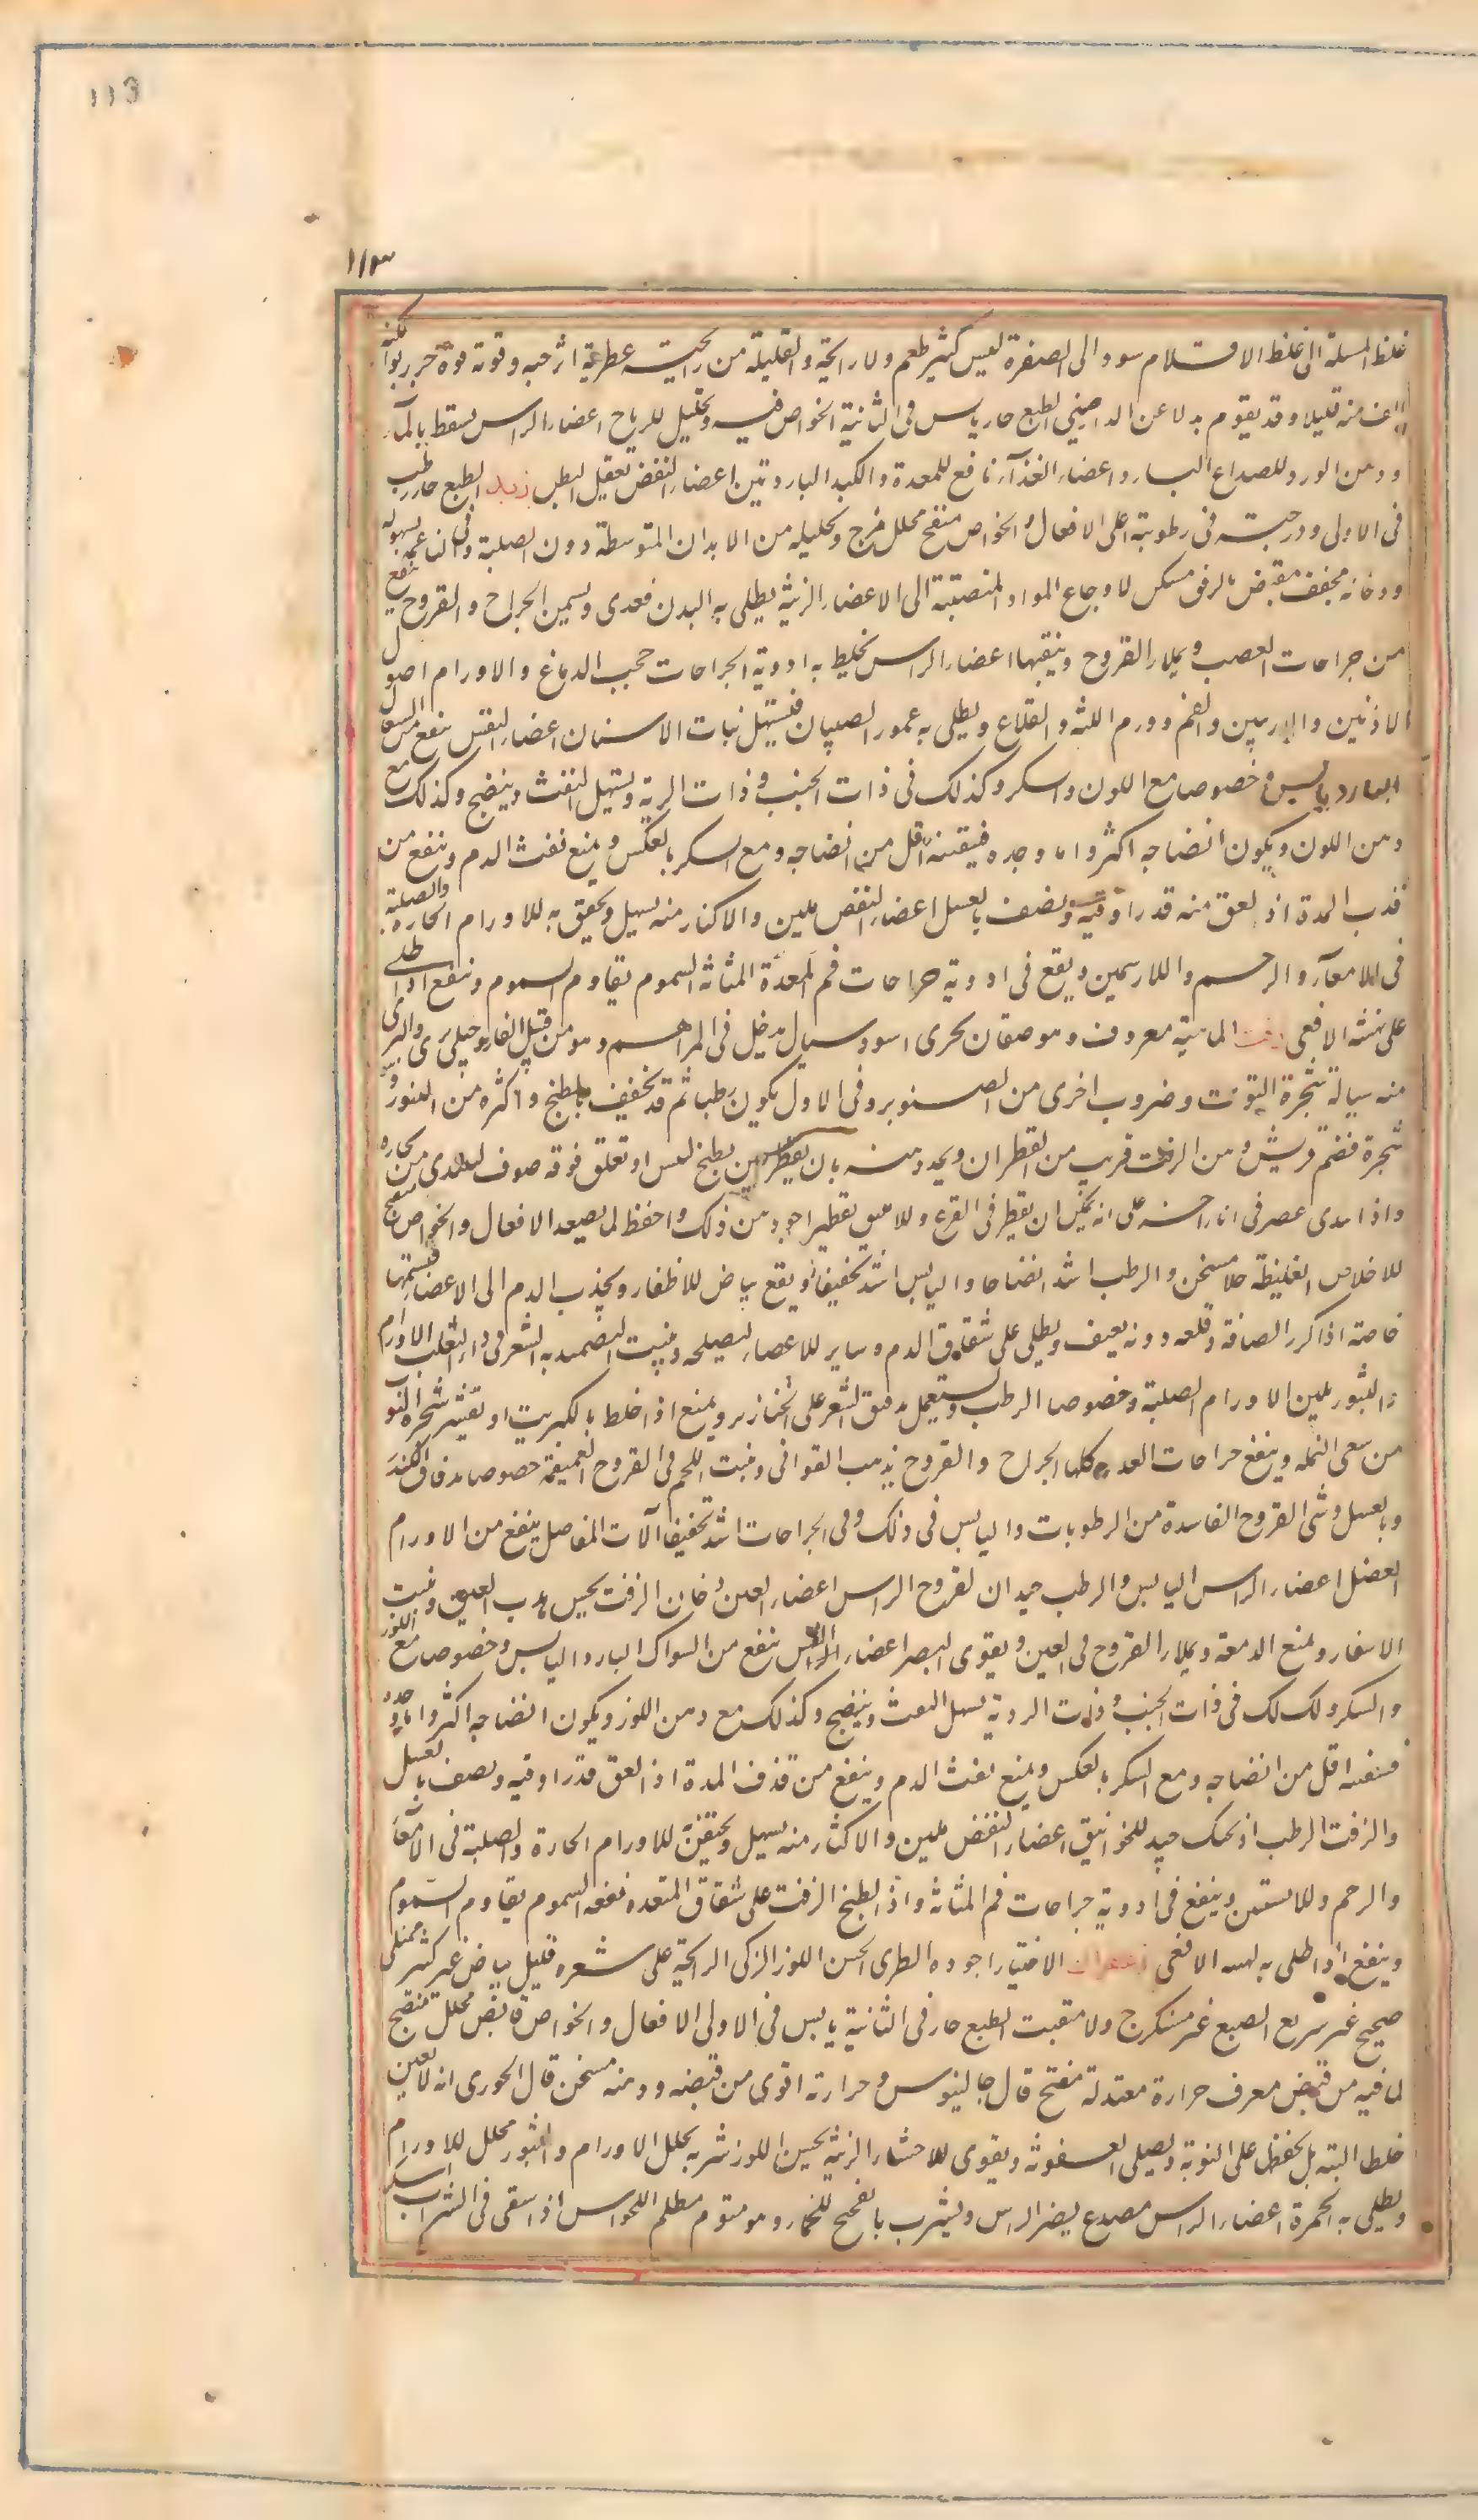 113
١١٣
غلظ المسلة الى غلظ الاقلام سود الى الصفرة ليس كثير طعم ولا رايحة والقليلة من رايحته عطرية اثر حبه وقوته قوة جربوا لكنه
الطف منه قليلا وقد يقوم بدلا عن الدارصيني الطبع حار يابس فى الثانية الخواص فيه تحليل للرياح اعضاء الراس يسقط بالمآء
ودهن الورد للصداع البارد اعضاء الغذآء نافع للمعدة والكبد الباردتين اعضاء النفض تعقل البطن زبد الطبع حار رطب
فى الاولى ودرجته فى رطوبة اعلى الافعال والخواص منضج محلل مرخ وتحليله من الابدان المتوسطة دون الصلبة وفى الناعمة بسهولة
ودخانه مجفف مقبض برفق مسكن لاوجاع المواد المنصبة الى الاعضاء الزينة يطلى به البدن فيغذى ويسمن الجراح والقروح ينفع
من جراحات العصب ويملاء القروح وينقيها اعضاء الراس يخلط به ادوية الجراحات حجب الدماغ والاورام اصول
الاذنين والاربيين والفم وورم اللثة والقلاع ويطلى به عمور الصبيان فيسهل نبات الاسنان اعضاء النفس ينفع من السعال
البارد اليابس خصوصا مع اللوز والسكر وكذلك فى ذات الجنب وذات الرية ويسهل النفث وينضج وكذلك مع
دهن اللوز ويكون انضاجه اكثر واما وحده فيقنه اقل من انضاجه ومع السكر بالعكس ويمنع نفث الدم وينفع من
قذف المدة اذ لعق منه قدر اوقية ونصف بالعسل اعضاء النفض ملين والاكثار منه يسهل ويحقن به للاورام الحارة والصلبة
فى الامعآء والرحم واللارسمين ويقع فى ادوية جراحات فم المعدة المثانة السموم يقاوم السموم وينفع اذا طلى
على نهشة الافعى زفت الماهية معروف وهو صنفان بحرى اسود سيال يدخل فى المراهم وهو من قبيل القار وجبلى برى والبرى
منه سيالة شجرة التوت وضروب اخرى من الصنوبر وفى الاول يكون رطبا ثم قد يجفف بالطبخ واكثره من الصنور
شجرة فضم قريش ودهن الزفت قريب من القطران ويحد دهنه بان يقطر حين يطبخ لعس او تعلق فوقه صوف ليندى من بخاره
واذا ندى عصر فى اناء اخر على انه يمكن ان يقطر فى القرع وللانبيق تقطيرا اجود من ذلك واحفظ لما يصعد الافعال والخواص منضج
للاخلاط الغليظة جلا مسخن والرطب اشد انضاجا واليابس اشد تجفيفا ويقع بياض للاظفار ويجذب الدم الى الاعضا فيسمنها
خاصة اذا كرر الصاقة وقلعه دونه بعنف ويطلى على شقاق القدم وساير للاعضاء ليصلحه وينبت التضميد به الشعر فى داء الثعلب الاورام
والبثور يلين الاورام الصلبة وخصوصا الرطب ويستعمل بدقيق الشعير على الخنازير ويمنع اذا خلط بالكبريت او بقشر شجرة التوب
من سعى النمله وينفع جراحات الغدد كلها الجراح والقروح يذهب القوابى وينبت اللحم فى القروح العميقة خصوصا بدقاق الكندر
وبالعسل وينقى القروح الفاسدة من الرطوبات واليابس فى ذلك وفى الجراحات اشد تجفيفا آلات المفاصل ينفع من الاورام
العضل اعضاء الراس اليابس والرطب جيدان لقروح الراس اعضاء العين دخان الزفت يحسن هدب العين وينبت
الاشفار ويمنع الدمعة ويملاء القروح فى العين ويقوى البصر اعضاء النفس ينفع من السواك البارد اليابس وخصوصا مع اللوز
والسكر ولك لك فى ذات الجنب وذات الروية يسهل النفث وينضج وكذلك مع دهن اللوز ويكون انضاجه اكثر واما وحده
فنفعه اقل من انضاجه ومع السكر بالعكس ويمنع نفث الدم وينفع من قذف المدة اذ العق قدر اوقيه ونصف بالعسل
والزفت الرطب اذ تحنك جيد للخوانيق اعضاء النفض ملين والاكثار منه يسهل ويحقن للاورام الحارة والصلبة فى الامعآء
والرحم وللانستين وينفع فى ادوية جراحات فم المثانة واذ الطخ الزفت على شقاق المقعده نفعه السموم يقاوم السموم
وينفع اذا طلى به لهسة الافعى زعفران الاختيار اجوده الطرى الحسن اللون الزكى الرايحة على شعره قليل بياض غير كثير ممتلى
صحيح غير سريع الصبغ غير متكرج ولا متفتت الطبع حار فى الثانية يابس فى الاولى الافعال والخواص قابض محلل منضج
لما فيه من قبض معرف حرارة معتدلة مفتح قال جالينوس وحرارته اقوى من قبضه ودهنه مسخن قال الخوزى انه لا يعين
خلطا البته بل يحفظها على النوبة ويصلح العفونة ويقوى للاحشاء الزينة يحسن اللون شربه يحلل الاورام والبثور محلل للاورام
ويطلى به الحمرة اعضاء الراس مصدع يضر الراس ويشرب بالفحح للخمار وهو منوم مظلم للحواس اذ اسقى فى الشراب اسكر